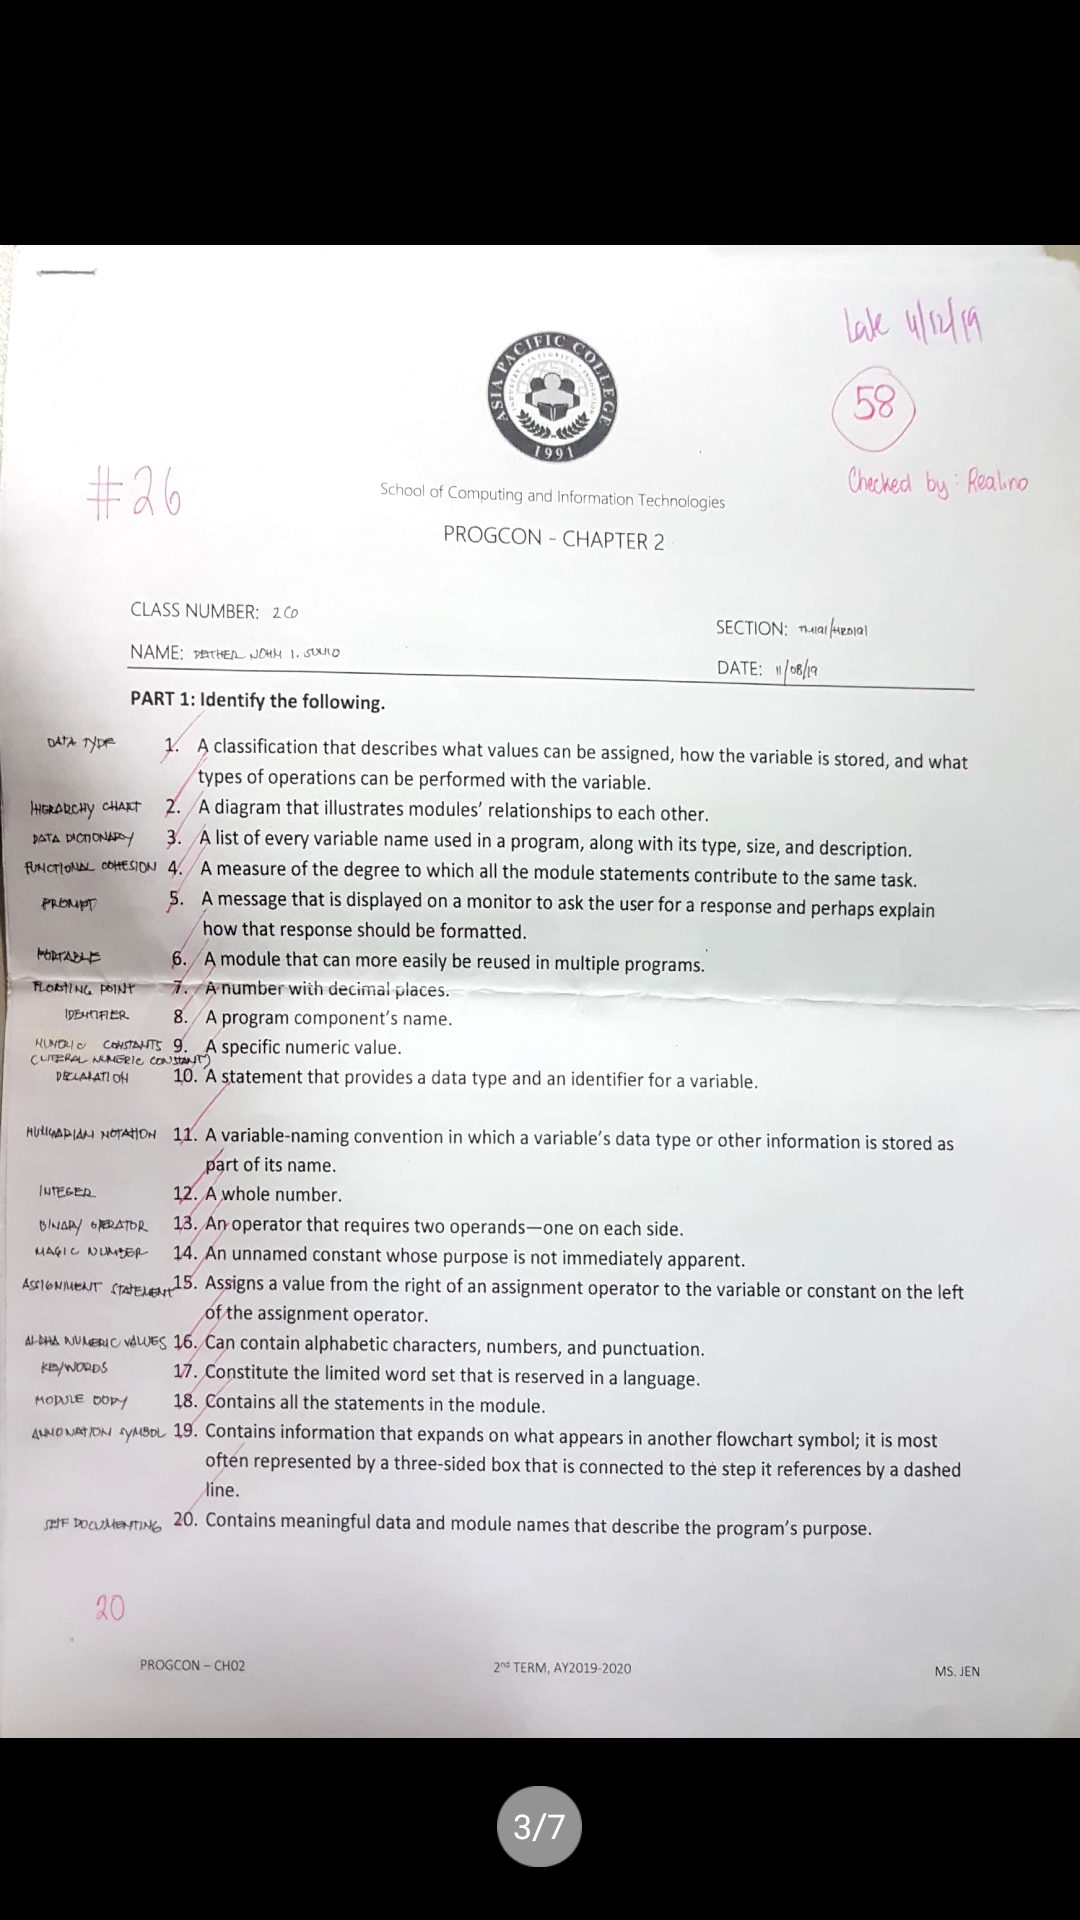 Late 11/12/19
58
Checked by: Realino
#26
ASIA PACIFIC COLLEGE
1991
School of Computing and Information Technologies
PROGCON - CHAPTER 2
CLASS NUMBER: 260
SECTION:
NAME: JOHN I.
DATE: 11/08/19
PART 1: Identify the following.
DATA TYPE 1. A classification that describes what values can be assigned, how the variable is stored, and what
types of operations can be performed with the variable.
HIERARCHY CHART 2. A diagram that illustrates modules' relationships to each other.
DATA DICTIONARY 3. A list of every variable name used in a program, along with its type, size, and description.
FUNCTIONAL COHESION 4. A measure of the degree to which all the module statements contribute to the same task.
PROMPT 5. A message that is displayed on a monitor to ask the user for a response and perhaps explain
how that response should be formatted.
PORTABLE 6. A module that can more easily be reused in multiple programs.
FLOATING POINT 7. A number with decimal places.
IDENTIFIER 8. A program component's name.
NUMERIC CONSTANTS 9. A specific numeric value.
(LITERAL NUMERIC CONSTANT)
DECLARATION 10. A statement that provides a data type and an identifier for a variable.
HUNGARIAN NOTATION 11. A variable-naming convention in which a variable's data type or other information is stored as
part of its name.
INTEGER 12. A whole number.
BINARY OPERATOR 13. An operator that requires two operands—one on each side.
MAGIC NUMBER 14. An unnamed constant whose purpose is not immediately apparent.
ASSIGNMENT STATEMENT 15. Assigns a value from the right of an assignment operator to the variable or constant on the left
of the assignment operator.
ALPHA NUMERIC VALUES 16. Can contain alphabetic characters, numbers, and punctuation.
KEYWORDS 17. Constitute the limited word set that is reserved in a language.
MODULE BODY 18. Contains all the statements in the module.
ANNONATION SYMBOL 19. Contains information that expands on what appears in another flowchart symbol; it is most
often represented by a three-sided box that is connected to the step it references by a dashed
line.
SELF DOCUMENTING 20. Contains meaningful data and module names that describe the program's purpose.
20
PROGCON – CH02
2nd TERM, AY2019-2020
MS. JEN
3/7